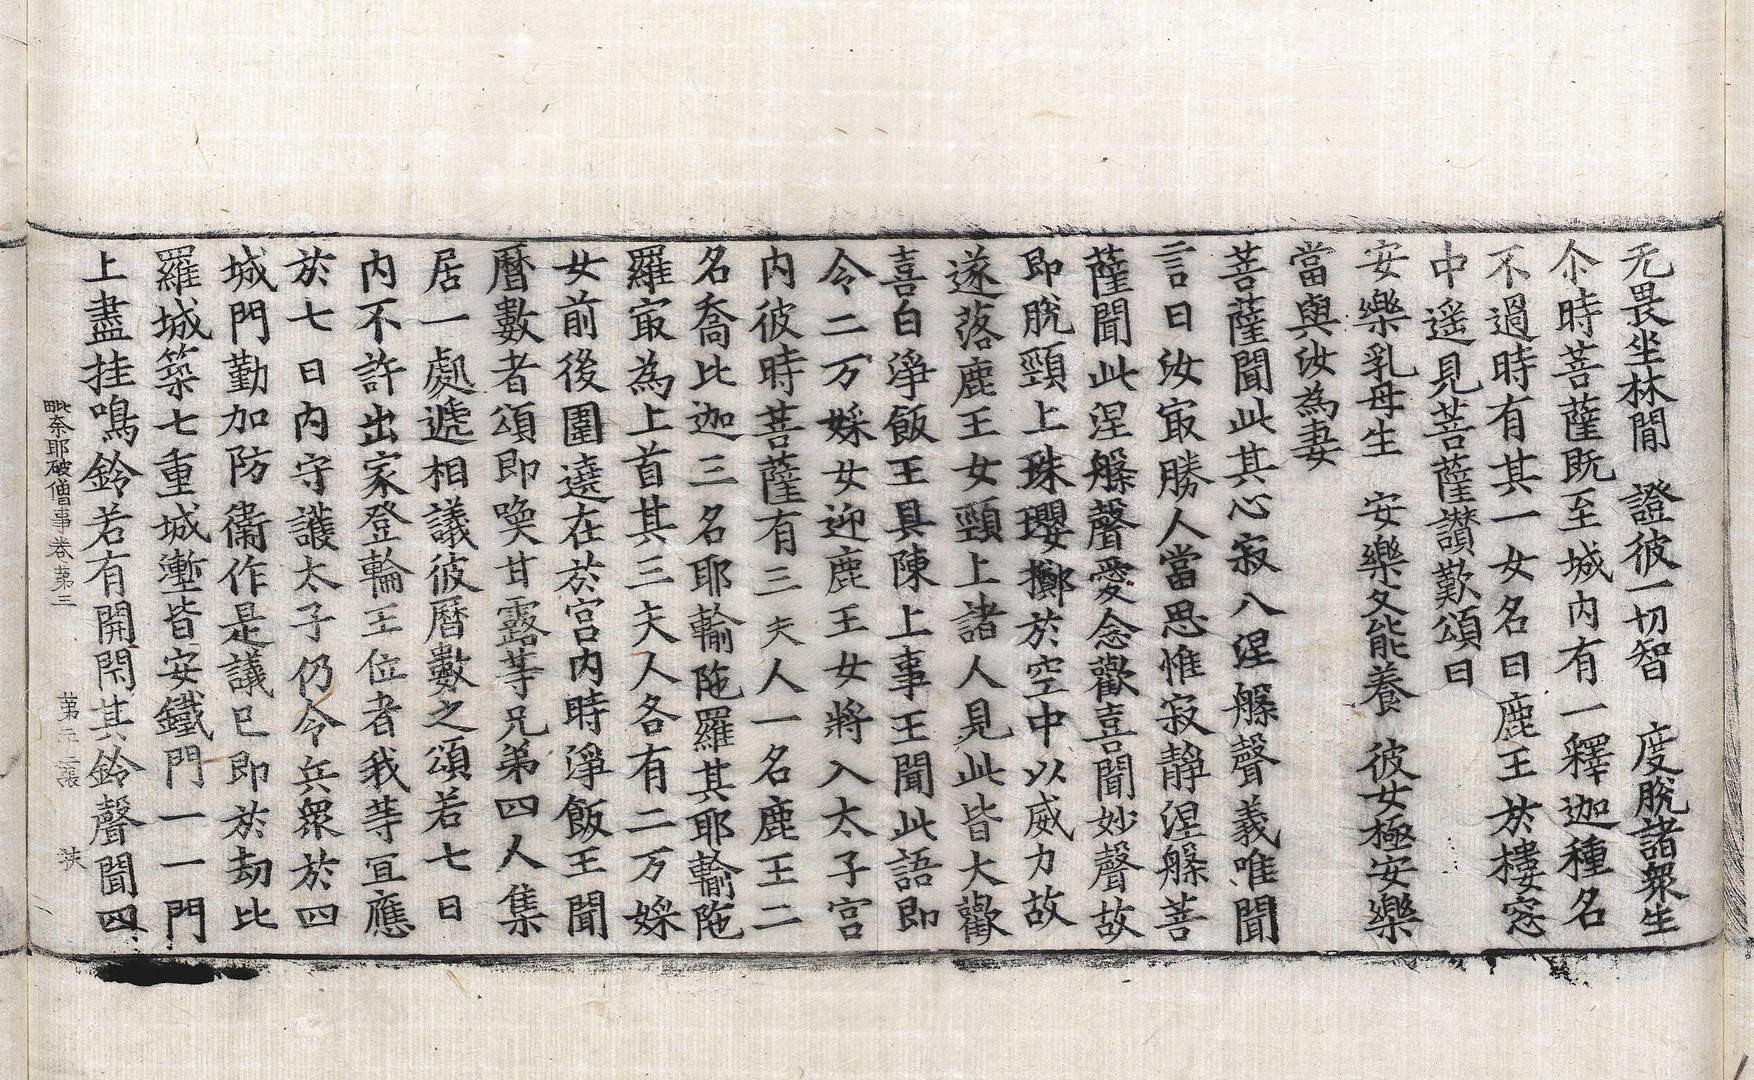 无畏坐林閒　證彼一切智　度脫諸衆生
尒時菩薩旣至城內有一釋迦種名
不過時有其一女名曰鹿王於樓窓
中遥見菩薩讃歎頌曰
安樂乳母生　安樂父能養　彼女極安樂
當與汝為妻
菩薩聞此其心寂八涅槃聲義唯聞
言曰汝㝡勝人當思惟寂靜涅槃菩
薩聞此涅槃聲愛念歡喜聞妙聲故
即脫頸上珠瓔擲於空中以威力故
遂落鹿王女頸上諸人見此皆大歡
喜白淨飯王具陳上事王聞此語即
令二万婇女迎鹿王女將入太子宮
內彼時菩薩有三夫人一名鹿王二
名喬比迦三名耶輸陁羅其耶輸陁
羅㝡為上首其三夫人各有二万婇
女前後圍遶在於宮內時淨飯王聞
曆數者頌即喚甘露等兄弟四人集
居一處遞相議彼曆數之頌若七日
內不許出家登輪王位者我等宜應
於七日內守護太子仍令兵衆於四
城門勤加防衛作是議已即於劫比
羅城築七重城壍皆安鐵門一一門
上盡挂鳴鈴若有開閇其鈴聲聞四
毗奈耶破僧事卷第三　第二張　扶